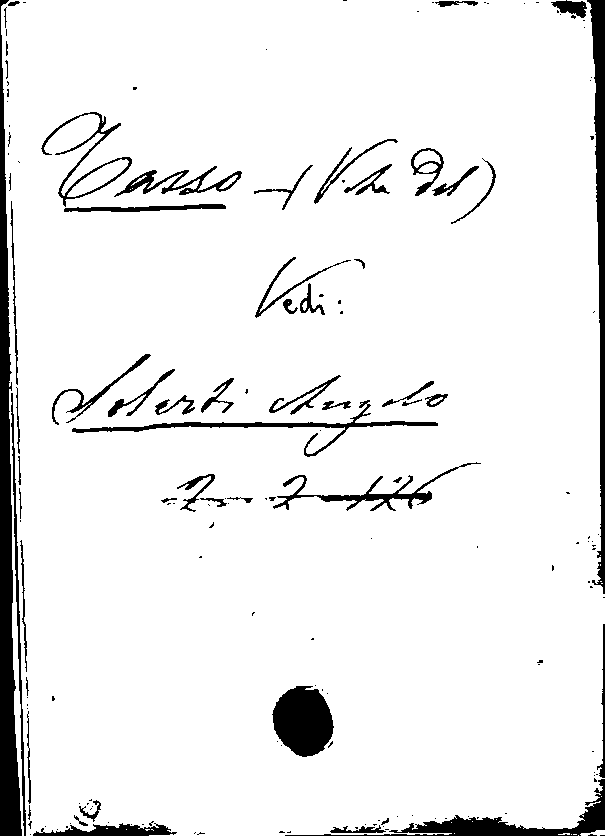 Tasso – (Vita del)
Vedi:
Solerti Angelo
2. 2 126